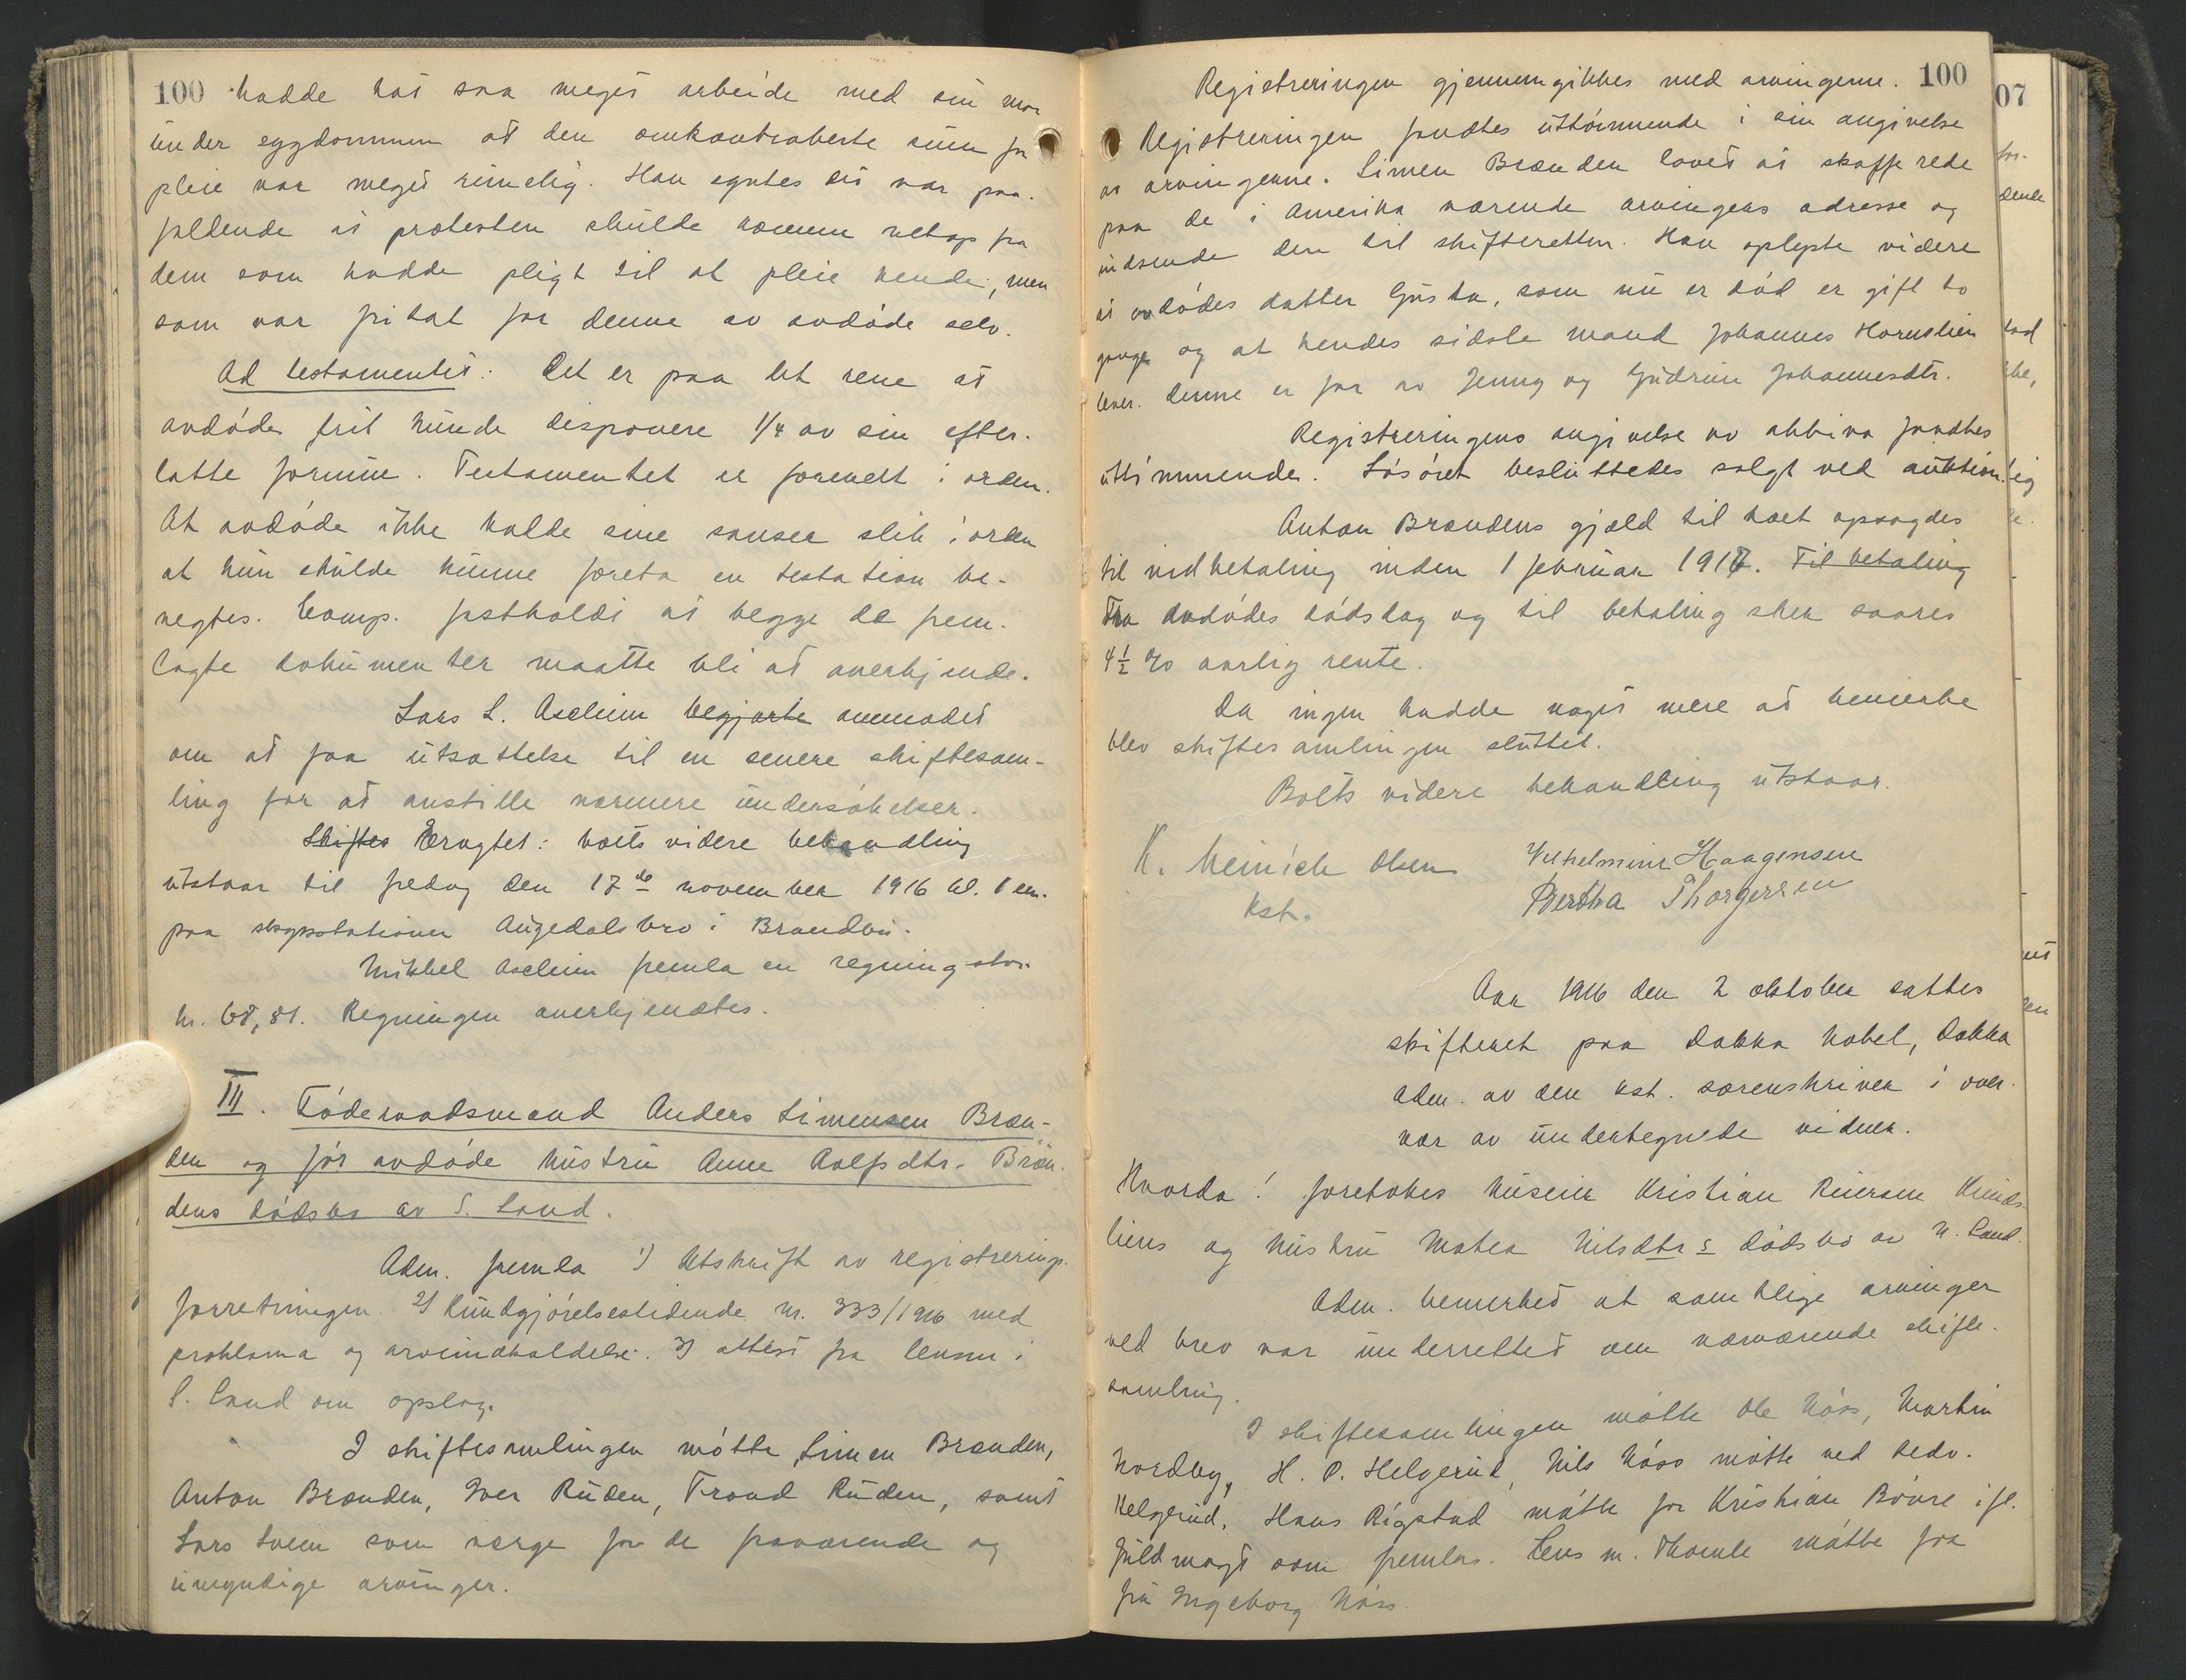 100 hadde hat saa meget arbeide med sin mor
under sygdommen at den omkontraherte sum for
pleie var meget rimelig. Han syntes det var paa-
faldende at protesten skulde komme netop fra
dem som hadde pligt til at pleie hende, men
som var fritat for denne av avdøde selv.
Ad testamentet: Det er paa det rene at
avdøde frit kunde disponere 1/4 av sin efter-
latte formue. Testamentet er forøvrig i orden.
At avdøde ikke hadde sine sanser slik i orden
at hun skulde kunne foreta en testation be-
negtes. Comp. fastholdt at begge de frem-
lagte dokumenter maatte bli at anerkjende.
Lars L. Askeim begjærte anmodet
om at faa utsættelse til en senere skiftesam-
ling for at anstille nærmere undersøkelser.
Skiftes Eragtet: boets videre behandling
utstaar til fredag den 17de november 1916 kl. 1 em.
paa skysstationen Augedalsbro i Brandbu.
Mikkel Askeim fremla en regning stor
kr. 68,81. Regningen anerkjendtes.
III. Føderaadsmand Anders Simensen Bræn-
den og før avdøde hustru Anne Rolfsdtr. Bræn-
dens dødsbo av S. Land.
Adm. fremla 1) Utskrift av registrerings-
forretningen. 2) Kundgjørelsestidende nr. 333/1916 med
proklama og arveindkaldelse. 3) attest fra lensm. i
S. Land om opslag.
I skiftesamlingen møtte Simen Brænden,
Anton Brænden, Iver Ruden, Trond Ruden, samt
Lars Sveen som verge for de fraværende og
umyndige arvinger.
Registreringen gjennemgikkes med arvingerne. 100
Registreringen fandtes uttømmende i sin angivelse
av arvingerne. Simen Brænden lovet at skaffe rede
paa de i Amerika værende arvingers adresse og
indsende den til skifteretten. Han oplyste videre
at avdødes datter Gusta, som nu er død er gift to
ganger og at hendes sidste mand Johannes Hornslien
lever. Denne er far av Jenny og Gudrun Johannesdtr.
Registreringens angivelse av aktiva fandtes
uttømmende. Løsøret besluttedes solgt ved auktion.
Anton Brændens gjæld til boet opsagdes
til indbetaling inden 1 februar 1917. Til betaling
Fra avdødes dødsdag og til betaling sker svares
4 1/2 % aarlig rente.
Da ingen hadde noget mere at bemerke
blev skiftesamlingen sluttet.
Boets videre behandling utstaar.
K. Meinich Olsen Vilhelmine Haagensen
kst. Bertha Thorgersen
Aar 1916 den 2 oktober sattes
skifteret paa Dokka hotel, Dokka
adm. av den kst. sorenskriver i over-
vær av undertegnede vidner.
Hvorda! foretokes husmr Kristian Reiersen Kinds-
liens og hustru Matea Nilsdtrs dødsbo av N. Land.
Adm. bemerket at samtlige arvinger
ved brev var underrettet om nærværende skifte-
samling.
I skiftesamlingen møtte Ole Næss, Martin
Nordby, H. P. Helgerud, Nils Næss møtte ved sedv.
Helgerud. Hans Rigstad møtte for Kristian Bøvre ifl.
fuldmagt som fremlas. Lens m. Thomle møtte for
fru Ingeborg Næss.
07